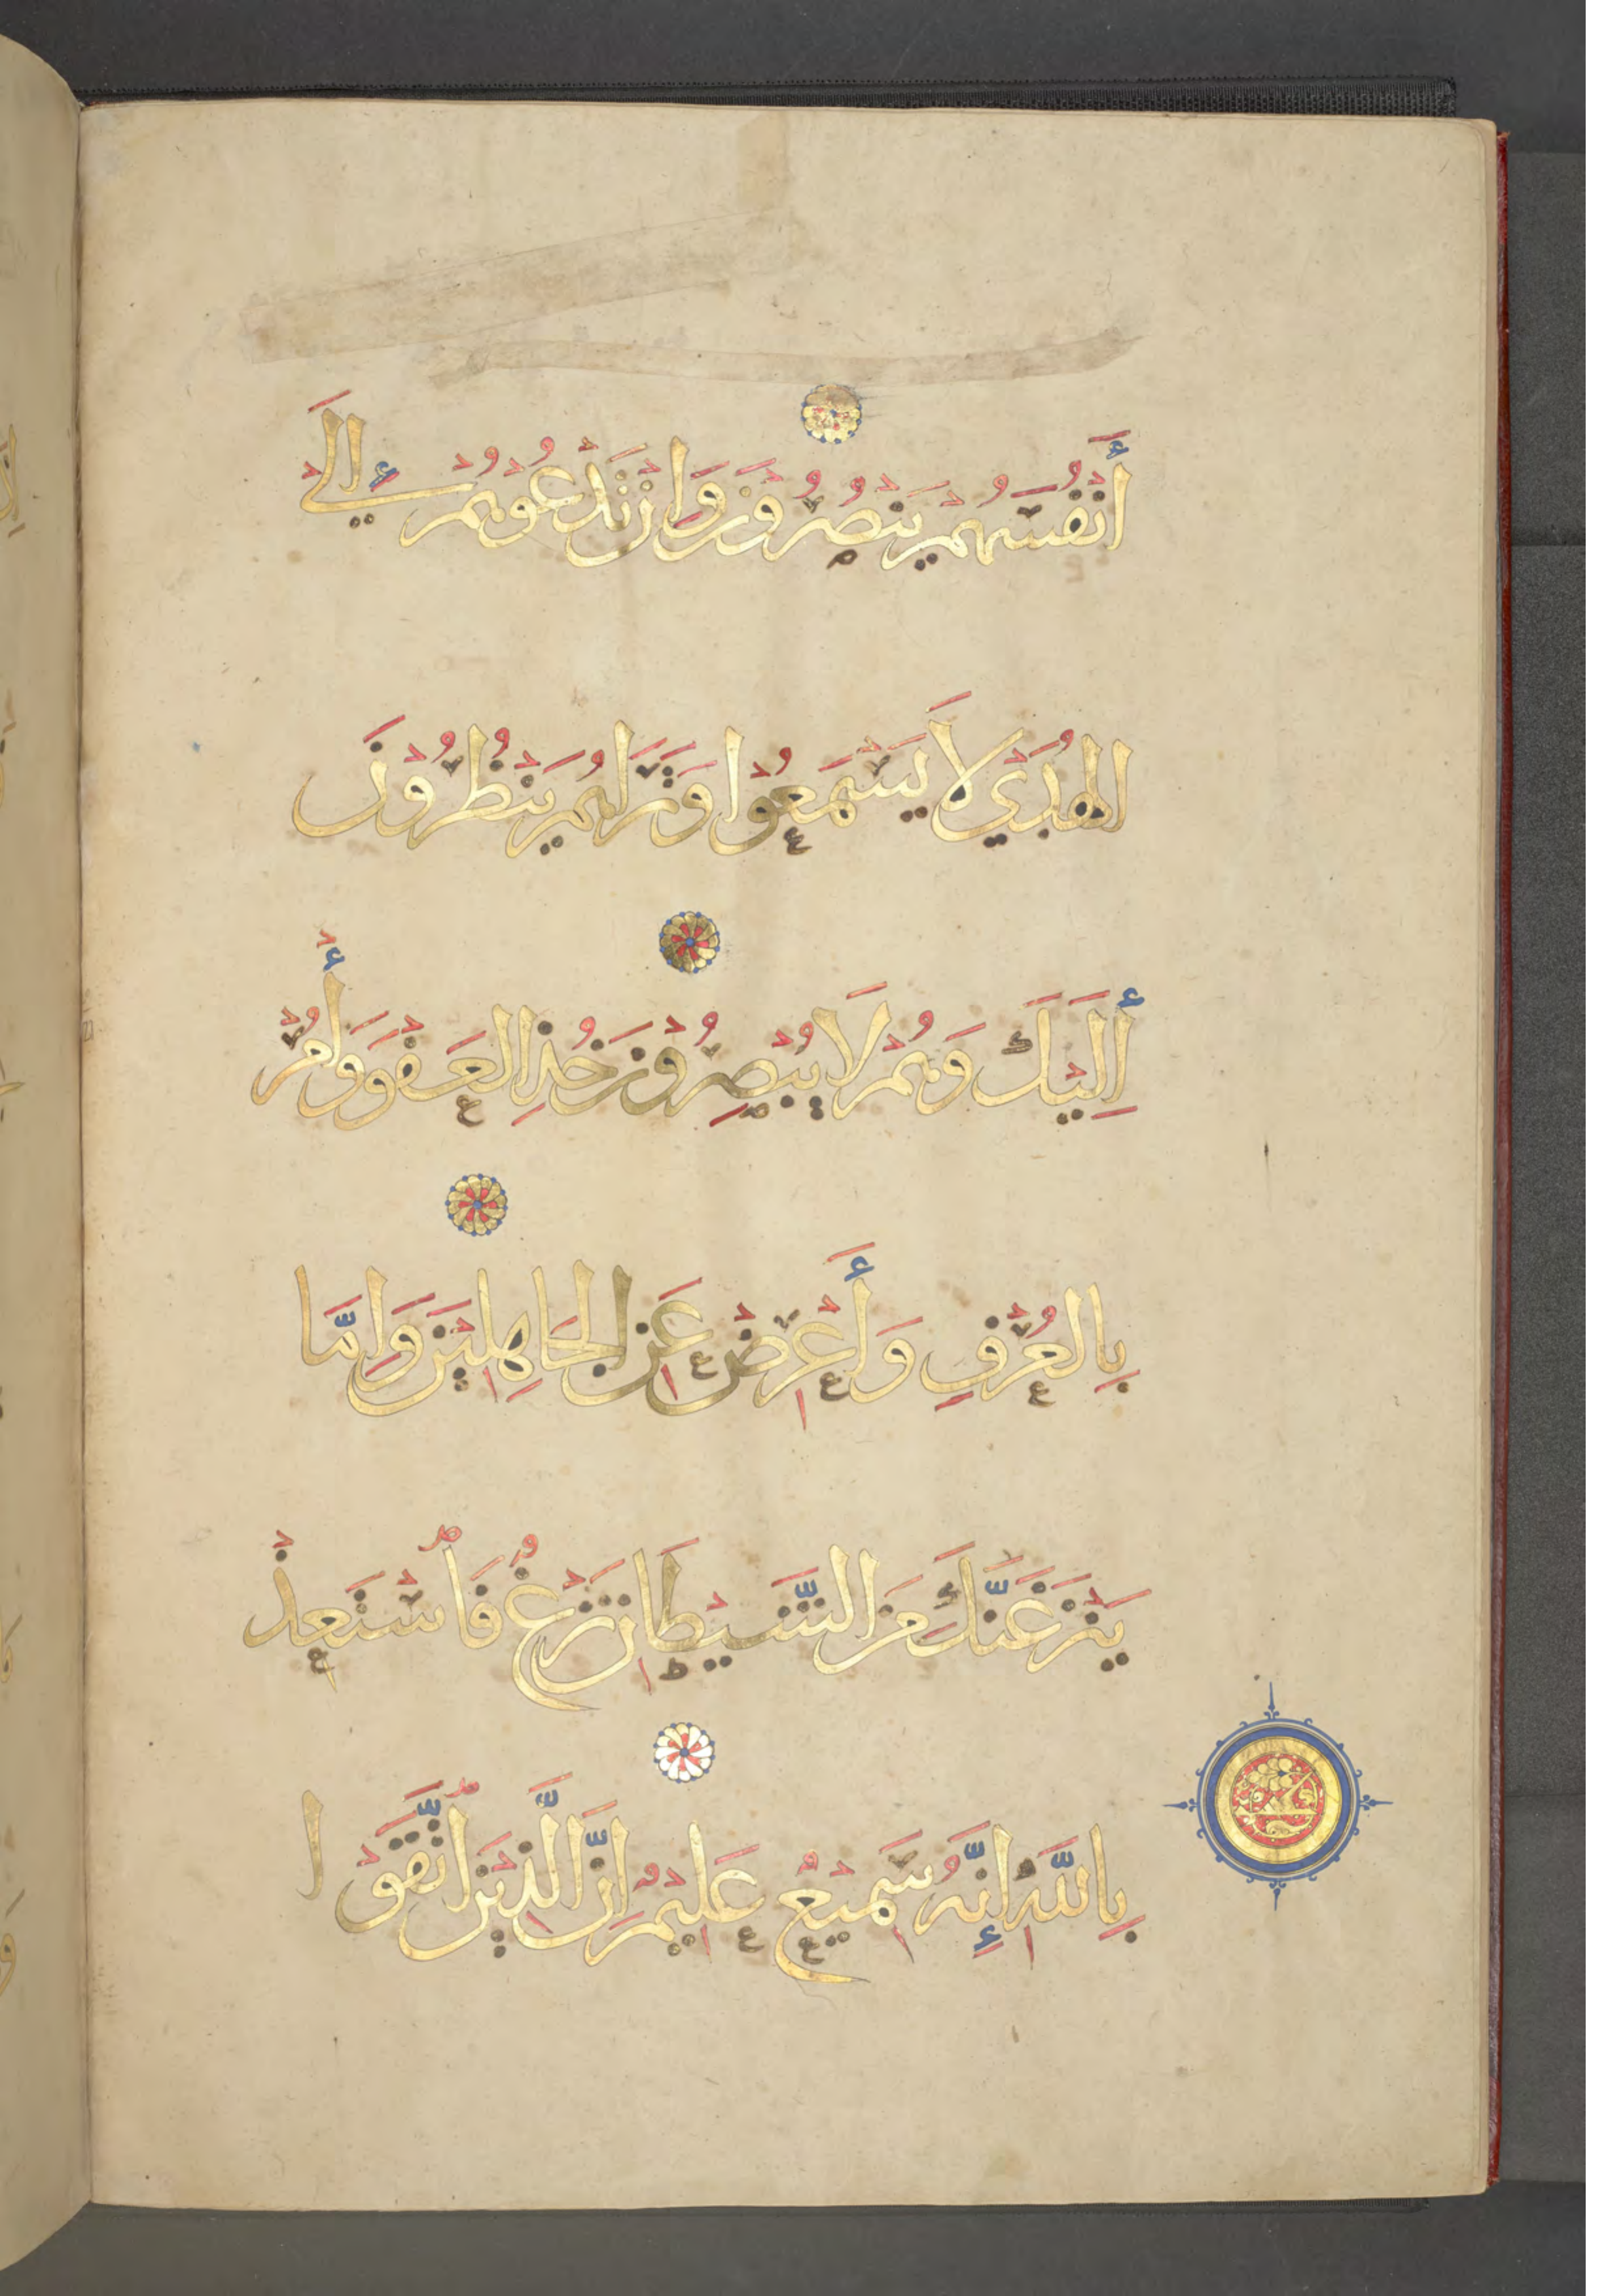 أَنْفُسَهُمْ يَنْصُرُونَ وَإِنْ تَدْعُوهُمْ إِلَى
الْهُدَى لَا يَسْمَعُوا وَتَرَاهُمْ يَنْظُرُونَ
إِلَيْكَ وَهُمْ لَا يُبْصِرُونَ خُذِ الْعَفْوَ وَأْمُرْ
بِالْعُرْفِ وَأَعْرِضْ عَنِ الْجَاهِلِينَ وَإِمَّا
يَنْزَغَنَّكَ مِنَ الشَّيْطَانِ نَزْغٌ فَاسْتَعِذْ
بِاللَّهِ إِنَّهُ سَمِيعٌ عَلِيمٌ إِنَّ الَّذِينَ اتَّقَوْا